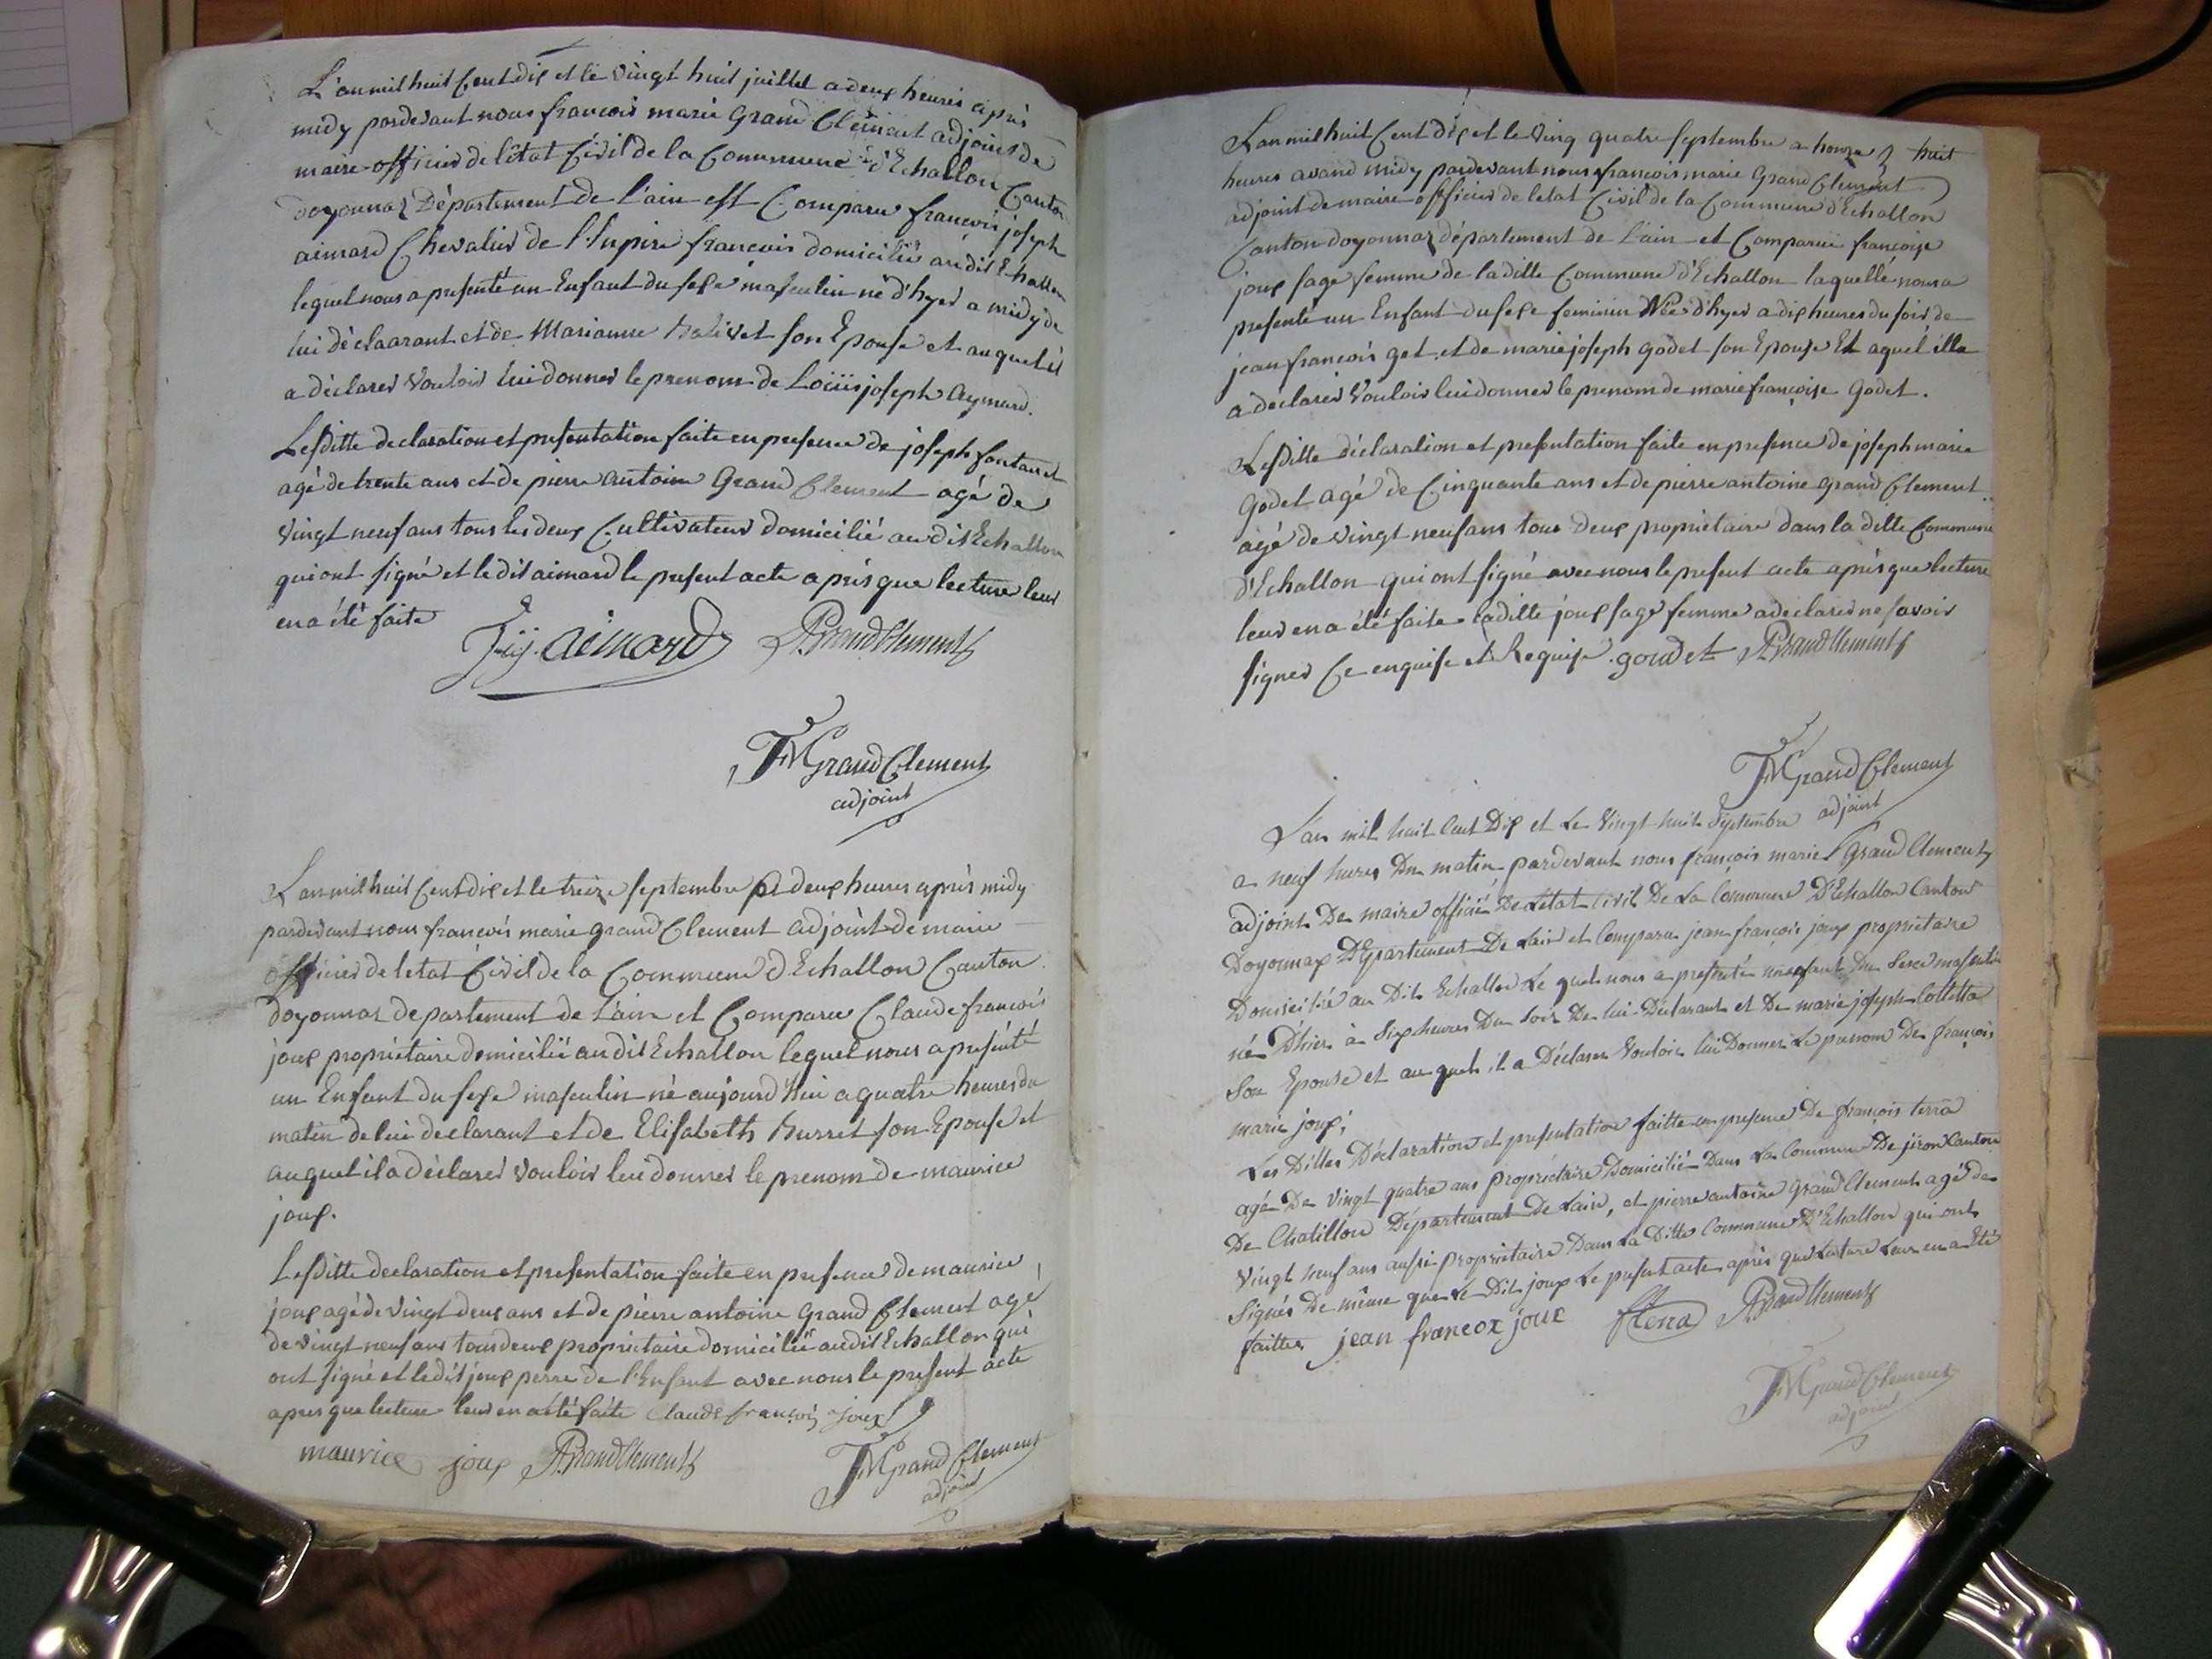 L'an mil huit Cent dix et le vingt huit juillet a deux heures après
midy pardevant nous francois marie Grand Clement adjoint de
maire officier de l'état Civil de la Commune d'Echallon Canton
doyonnaz Département de l'ain est Comparu francois joseph
aimard Chevalier de l'Inpire francois domicilié au dit Echallon
lequel nous a présenté un Enfant du sexe masculin né d'hyer a midy de
lui déclaarant et de Marianne son Epouse et auquel il
a déclarer vouloir lui donner le prenom de Loüis joseph Aymard.
Lesditte declaration et presentation faite en presence de joseph fontanet
agé de trente ans et de pierre antoine Grand Clement agé de
vingt neuf ans tous les deux Cultivateur domicilié au dit Echallon
qui ont signé et le dit aimard le present acte après que lecture leur
en a été faite
aimard PA Grand Clement
FM Grand Clement
adjoint
L'an mil huit Cent dix et le treize septembre a deux heures après midy
pardevant nous francois marie grand Clement adjoint de marie
officier de letat Civil de la Commune d'Echallon Canton
doyonnaz departement de l'ain et Comparu Claude francois
joux propriétaire domicilié au dit Echallon lequel nous a présenté
un Enfant du sexe masculin né aujourd'hui a quatre heures du
matin de lui declarant et de Elisabeth Burret son Epouse et
auquel il a déclarer vouloir lui donner le prenom de maurice
joux.
Lesditte declaration et presentation faite en presence de maurice
joux agé de vingt deux ans et de pierre antoine Grand Clement agé
de vingt neuf ans tous deux propriétaire domicilié au dit Echallon qui
ont signé et le dit joux perre de l'Enfant avec nous le present acte
apres que lecture leur en a été faite Claude françois joux
maurice joux PA Grand Clement FM Grand Clement
adjoint
L'an mil huit Cent dix et le ving quatre septembre a huit
heures avand midy pardevant nous francois marie Grand Clement
adjoint de maire officier de letat Civil de la Commune d'Echallon
Canton doyonnaz département de l'ain et Comparue francoise
joux sage femme de la ditte Commune d'Echallon laquelle nous a
presenté un Enfant du sexe feminin Née d'hyer a dix heures du soir de
jean francois get et de marie joseph godet son Epouse Et a quel illa
a declarer vouloir lui donner le prenom de marie françoise Godet.
Lesditte déclaration et presentation faite en presence de joseph marie
Godet agé de Cinquante ans et de pierre antoine grand Clement
agé de vingt neuf ans tous deux propriétaire dans la ditte Commune
d'Echallon qui ont signé avec nous le present acte après que lecture
leur en a été faite laditte joux sage femme a declarer ne savoir
signer Ce enquise et Requise. goudet PA Grand Clement
FM Grand Clement
adjoint
L'an mil huit Cent Dix et Le Vingt huit Septembre
a neuf heures Du matin pardevant nous françois marie Grand Clement
adjoint De maire officié De Létat Civil De La Commune D'Echallon Canton
Doyonnax Département De Lain et Comparu jean françois joux propriétaire
Domicilié au Dit Echallon Le quel nous a présenté un enfant Du Sexe masculin
né D'hier à Six heures Du Soir De lui Déclarant et De marie joseph Colletta
Son Epouse et au quel il a Déclarer Vouloir lui Donner Le prenom De françois
marie joux;
Les Dittes Déclaration et presentation faitte en presence De françois terra
agé De Vingt quatre ans propriétaire Domicilié Dans La Commune De jiron Canton
De Chatillon Département De Lain, et pierre antoine Grand Clement agé de
Vingt neuf ans aussi propriétaire Dans La Ditte Commune D'Echallon qui ont
Signés De même que Le Dit joux Le present acte après que Lecture Leur en a Eté
faitte jean francox joux fterra PA Grand Clement
FM Grand Clement
adjoint